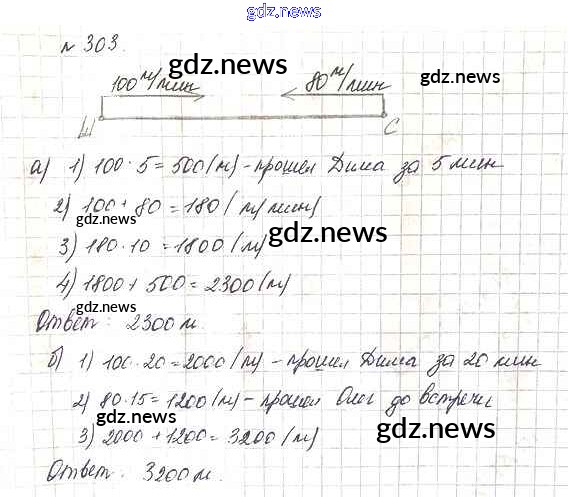 gdz.news
№ 303.
gdz.news
100 м/мин 80 м/мин gdz.news
Ш С
а) 1) 100 · 5 = 500 (м) - прошел Дима за 5 мин
2) 100 + 80 = 180 (м/мин)
gdz.news
3) 180 · 10 = 1800 (м)
gdz.news
4) 1800 + 500 = 2300 (м)
gdz.news
Ответ: 2300 м.
б) 1) 100 · 20 = 2000 (м) - прошел Дима за 20 мин
2) 80 · 15 = 1200 (м) - прошел Олег до встречи
gdz.news
3) 2000 + 1200 = 3200 (м)
gdz.news
Ответ: 3200 м.
gdz.news